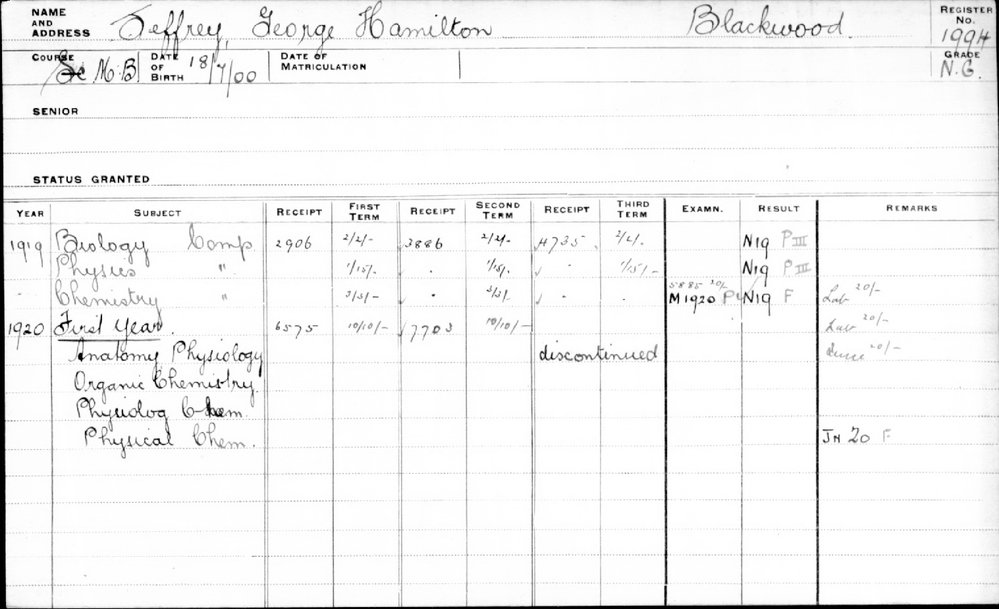 NAME AND ADDRESS Jeffrey, George Hamilton Blackwood. REGISTER No. 1994
COURSE Sc M.B. DATE OF BIRTH 18/7/00 DATE OF MATRICULATION GRADE N.G.
SENIOR
STATUS GRANTED
YEAR SUBJECT RECEIPT FIRST TERM RECEIPT SECOND TERM RECEIPT THIRD TERM EXAMN. RESULT REMARKS
1919 Biology Comp 2906 2/2/- 3886 2/2/- 4735 2/2/- N19 P III
Physics " 1/15/- . 1/15/- . 1/15/- N19 P III
5885 20/-
Chemistry " 3/3/- . 3/3/- . . M1920 N19 F Lab 20/-
1920 First Year. 6575 10/10/- 7703 10/10/- Lab 20/-
Anatomy, Physiology discontinued 20/-
Organic Chemistry
Physiolog Chem.
Physical Chem. JN 20 F